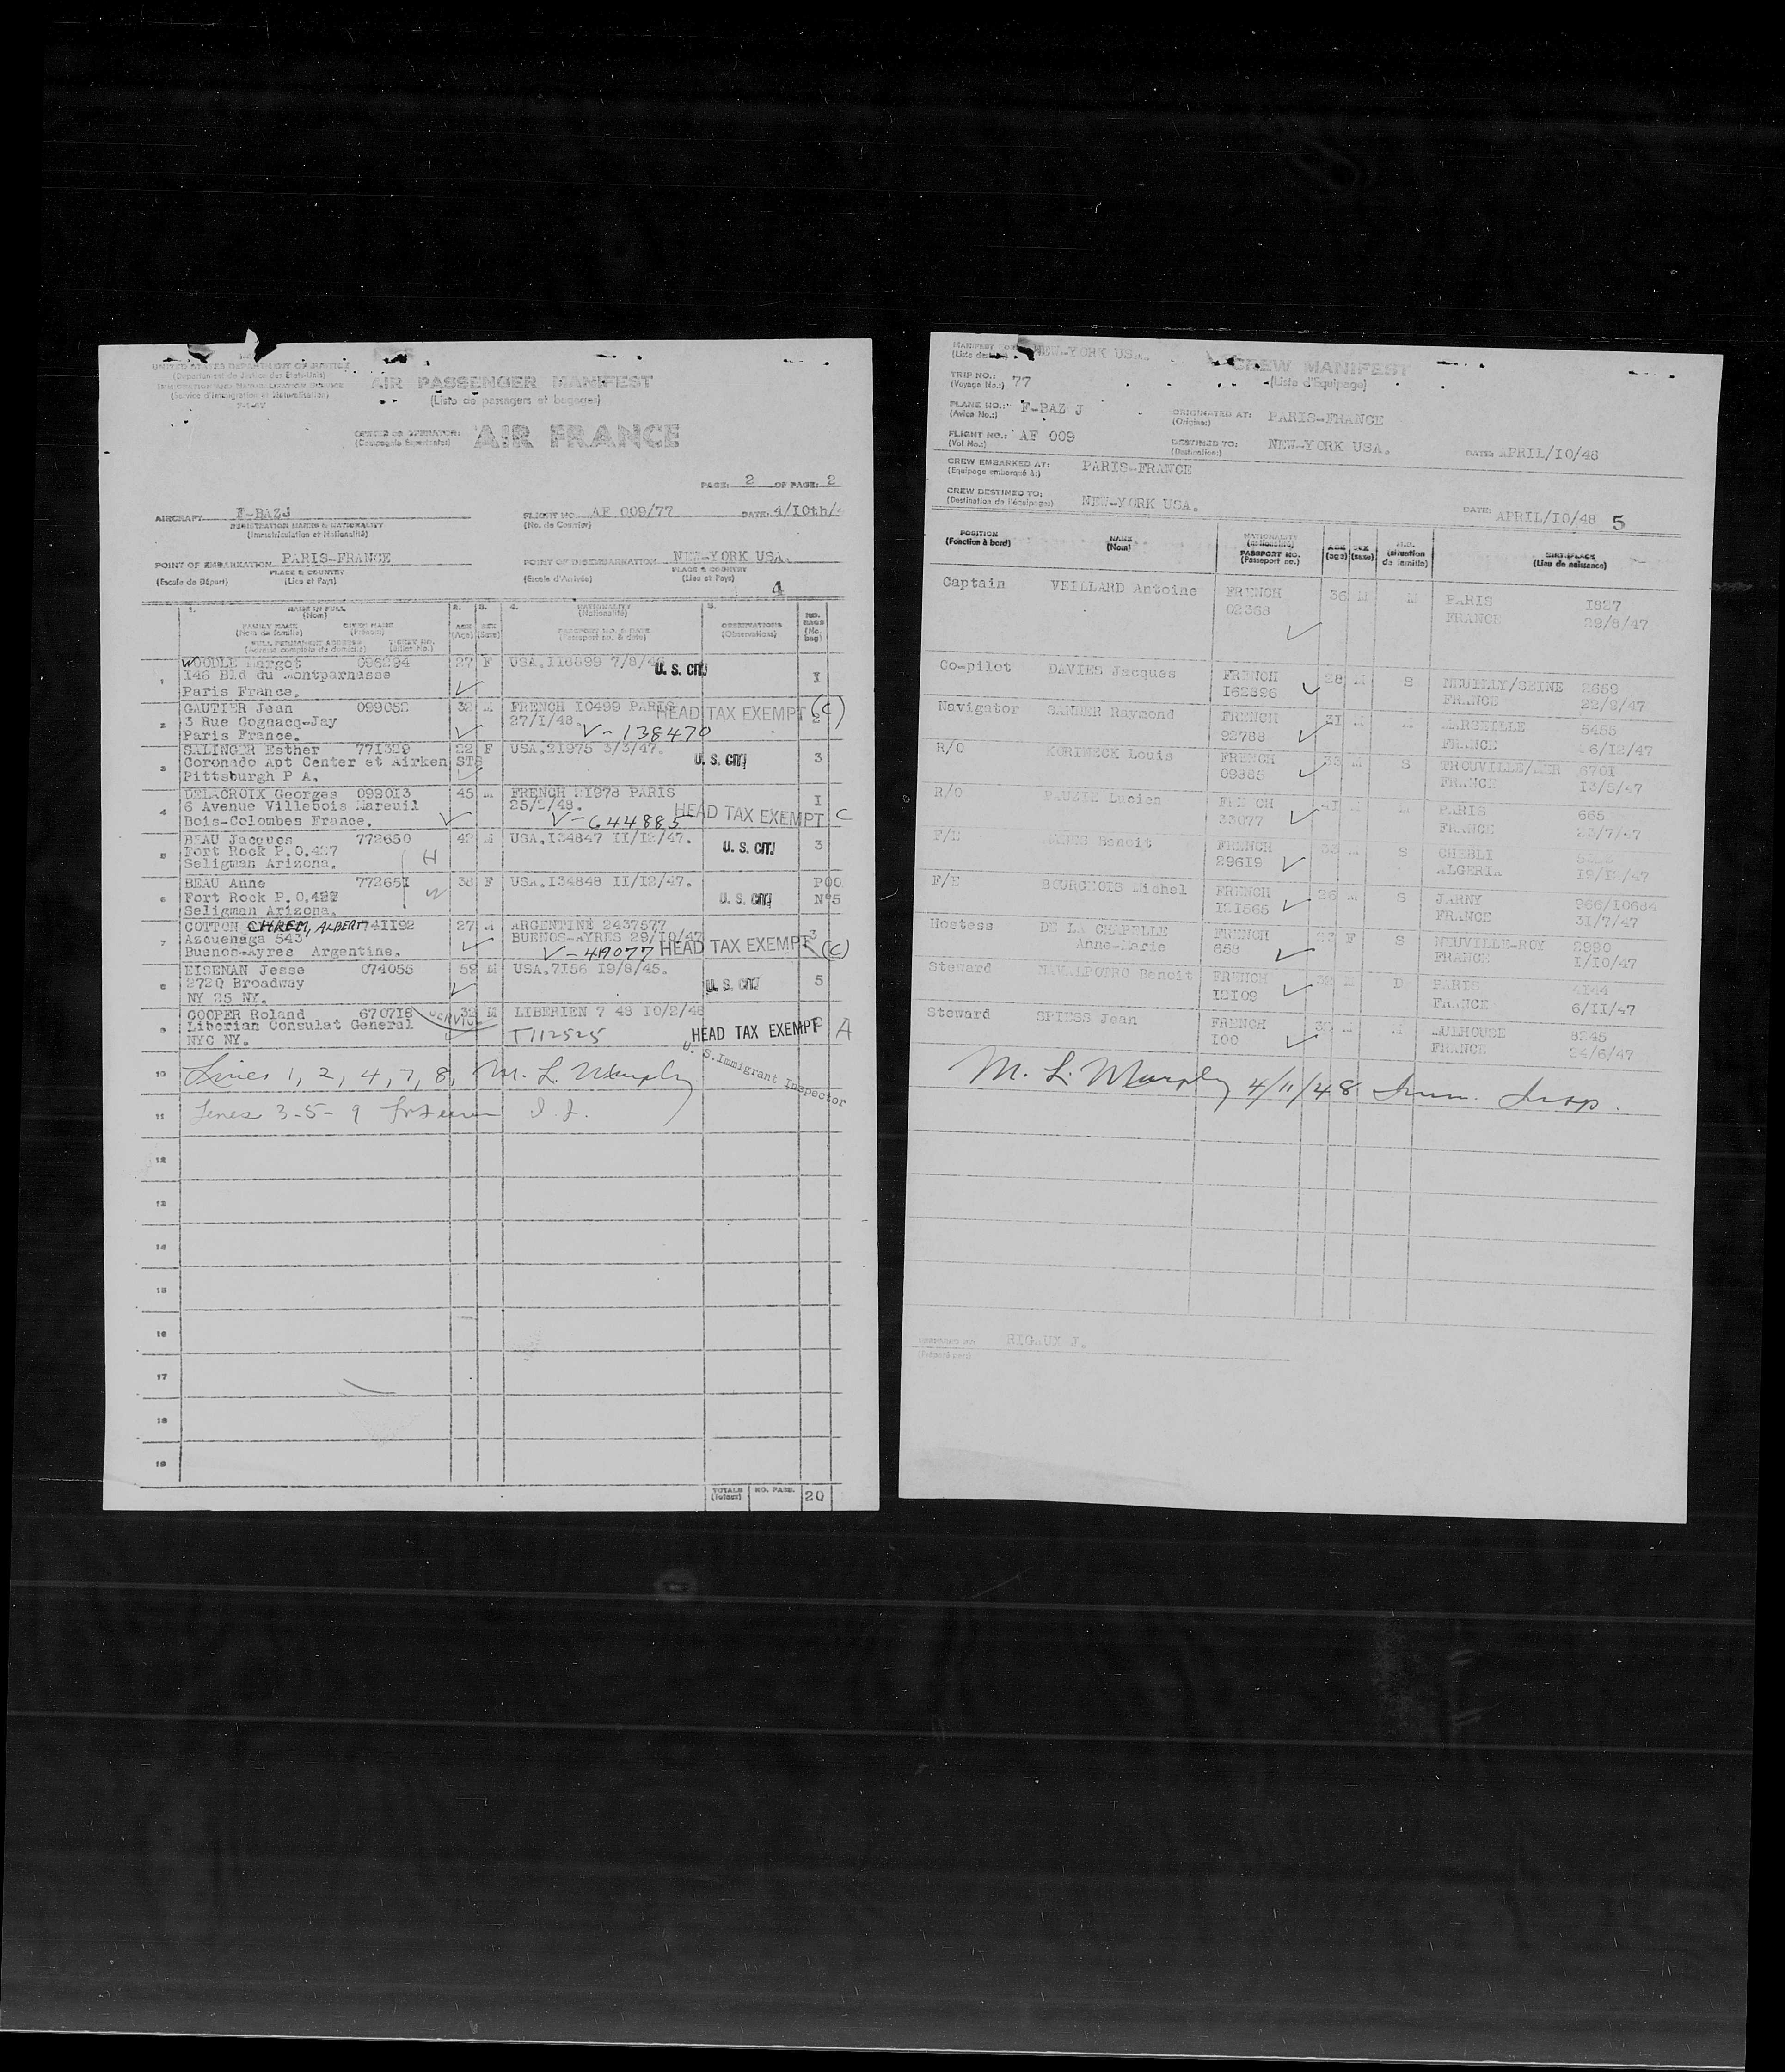 UNITED STATES DEPARTMENT OF JUSTICE
(Departement de Justice des Etats-Unis)
IMMIGRATION AND NATURALIZATION SERVICE
(Service d'Immigration et Naturalisation)
AIR PASSENGER MANIFEST
(Liste de passagers et bagages)
OWNER OR OPERATOR:
AIR FRANCE
PAGE: 2 OF PAGE: 2
AIRCRAFT F-BAZJ
REGISTRATION MARKS & NATIONALITY
(Immatriculation et Nationalité)
FLIGHT NO AF 009/77 DATE: 4/10th/
(No. de Courrier)
POINT OF EMBARKATION PARIS-FRANCE
PLACE & COUNTRY
(Escale de Départ) (Lieu et Pays)
POINT OF DISEMBARKATION NEW-YORK USA.
PLACE & COUNTRY
(Escale d'Arrivée) (Lieu et Pays)
4
1. NAME IN FULL
(Nom)
FAMILY NAME GIVEN NAME
(Nom de famille) (Prénom)
FULL PERMANENT ADDRESS TICKET NO.
(Adresse complète de domicile) (Billet No.)
AGE
(Age)
SEX
(Sexe)
NATIONALITY
(Nationalité)
PASSPORT NO. & DATE
(Passeport no. & date)
OBSERVATIONS
(Observations)
NO. BAGS
(No. bag)
1 WOUDLE Margot 096294 27 F USA.116899 7/8/4 U. S. CIT. I
146 Bld du Montparnasse
Paris France.
2 GAUTIER Jean 099052 32 M FRENCH 10499 PARIS HEAD TAX EXEMPT 2 (C)
3 Rue Cognacq-Jay 27/1/48. V-138470
Paris France.
3 SALINGER Esther 771329 22 F USA.21975 3/3/47. U. S. CIT. 3
Coronado Apt Center et Airken STS
Pittsburgh P A.
4 DELACROIX Georges 099013 45 M FRENCH 21978 PARIS I
6 Avenue Villebois Mareuil 25/2/48. HEAD TAX EXEMPT C
Bois-Colombes France. V-644885
5 BEAU Jacques 772650 42 M USA.134847 II/12/47. U. S. CIT. 3
Fort Rock P.O.427 H
Seligman Arizona.
6 BEAU Anne 772651 38 F USA.134848 II/12/47. U. S. CIT. POO
Fort Rock P.O.427 W N°5
Seligman Arizona.
7 COTTON CHREM, ALBERT 741192 27 M ARGENTINE 2437577 3
Azcuenaga 543 BUENOS-AYRES 29/10/47 HEAD TAX EXEMPT (C)
Buenos-Ayres Argentine. V-419077
8 EISENAN Jesse 074055 59 M USA.7156 19/8/45. U. S. CIT. 5
2720 Broadway
NY 25 NY.
9 COOPER Roland 670718 32 M LIBERIEN 7 48 10/2/48
Liberian Consulat General T112525 HEAD TAX EXEMPT A
NYC NY.
10 Lines 1, 2, 4, 7, 8, M. L. Murphy U. S. Immigrant Inspector
11 Lines 3-5-9 I. I.
12
13
14
15
16
17
18
19
TOTALS
(Totaux)
NO. PASS. 20
NEW-YORK USA.
CREW MANIFEST
(Liste d'Equipage)
TRIP NO.: 77
(Voyage No.:)
PLANE NO.: F-BAZ J
(Avion No.:)
ORIGINATED AT: PARIS-FRANCE
(Origine:)
FLIGHT NO.: AF 009
(Vol No.:)
DESTINED TO: NEW-YORK USA. DATE: APRIL/10/48
(Destination:)
CREW EMBARKED AT: PARIS-FRANCE
(Equipage embarqué à:)
CREW DESTINED TO: NEW-YORK USA.
(Destination de l'équipage:)
DATE: APRIL/10/48 5
POSITION
(Fonction à bord)
NAME
(Nom)
NATIONALITY
(nationalité)
PASSPORT NO.
(Passeport no.)
AGE
(age)
SEX
(sexe)
M.S.
(situation de famille)
BIRTHPLACE
(Lieu de naissance)
Captain VEILLARD Antoine FRENCH 36 M M PARIS 1827
02368 FRANCE 29/8/47
Co-pilot DAVIES Jacques FRENCH 28 M S NEUILLY/SEINE 2659
162896 FRANCE 22/2/47
Navigator Raymond FRENCH 31 M M MARSEILLE 5455
92788 FRANCE 6/12/47
R/O KORINECK Louis FRENCH 33 M S TROUVILLE/MER 6701
09885 FRANCE 13/5/47
R/O Lucien FRENCH 41 M M PARIS 665
33077 FRANCE 23/7/47
F/E Benoit FRENCH 33 M S CHEBLI
29619 ALGERIA 19/12/47
F/E BOURGEOIS Michel FRENCH 26 M S JARNY 966/10684
121565 FRANCE 31/7/47
Hostess DE LA CHAPELLE FRENCH 23 F S NEUVILLE-ROY 2990
Anne-Marie 658 FRANCE 1/10/47
Steward Benoit FRENCH M D PARIS 4144
12109 FRANCE 6/11/47
Steward SPIESS Jean FRENCH M M MULHOUSE 8245
100 FRANCE 24/6/47
M. L. Murphy 4/11/48 Imm. Insp.
RIGAUX J.